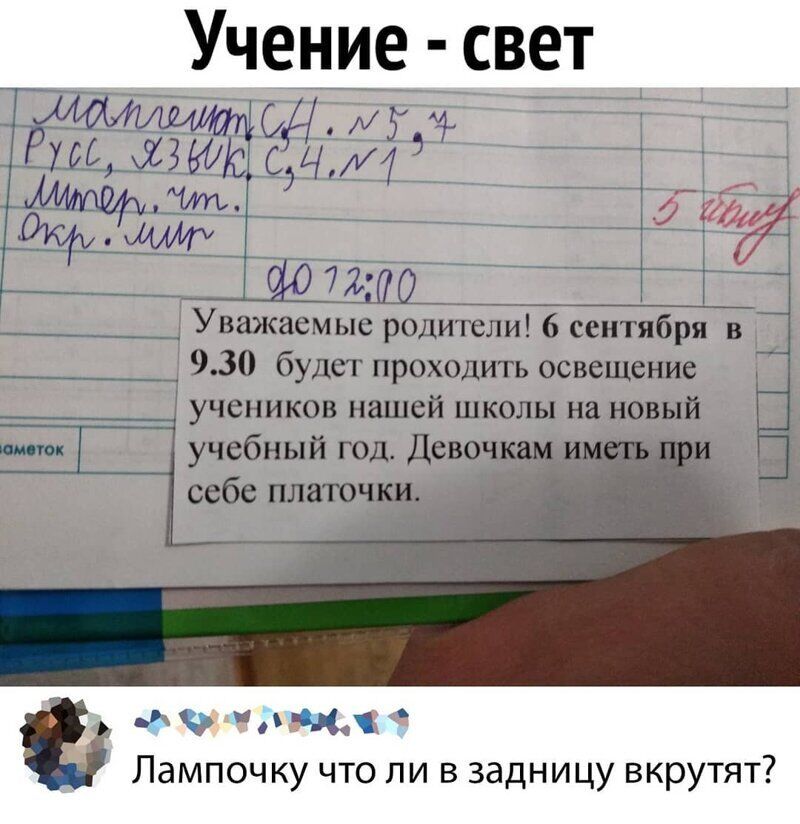 Учение - свет
математ. С,4. №5,7
Русс, язык. С,4. №1
Литер. чт.
Окр. мир
5
до 12:00
Уважаемые родители! 6 сентября в
9.30 будет проходить освещение
учеников нашей школы на новый
учебный год. Девочкам иметь при
себе платочки.
аметок
Лампочку что ли в задницу вкрутят?